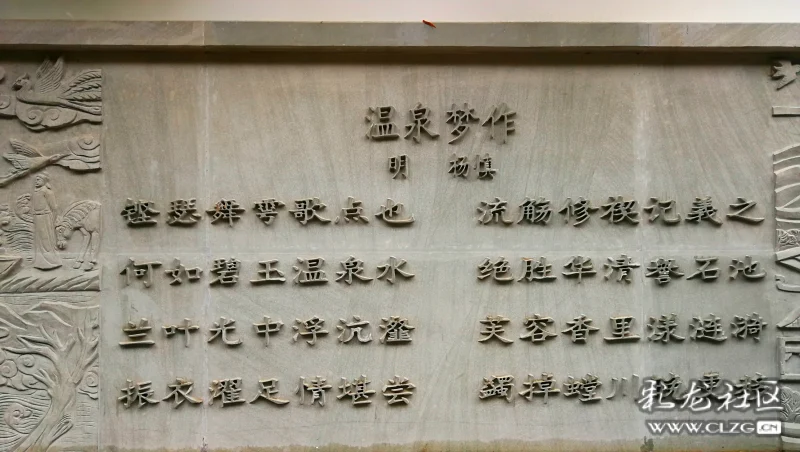 温泉梦作
明 杨慎
铿瑟舞雩歌点也 流觞修禊记義之
何如碧玉温泉水 绝胜华清礜石池
兰叶光中浮沆瀣 芙容香里漾涟漪
振衣濯足情堪尝 蠲掉螳川
麸龙社区
WWW.CLZG.CN